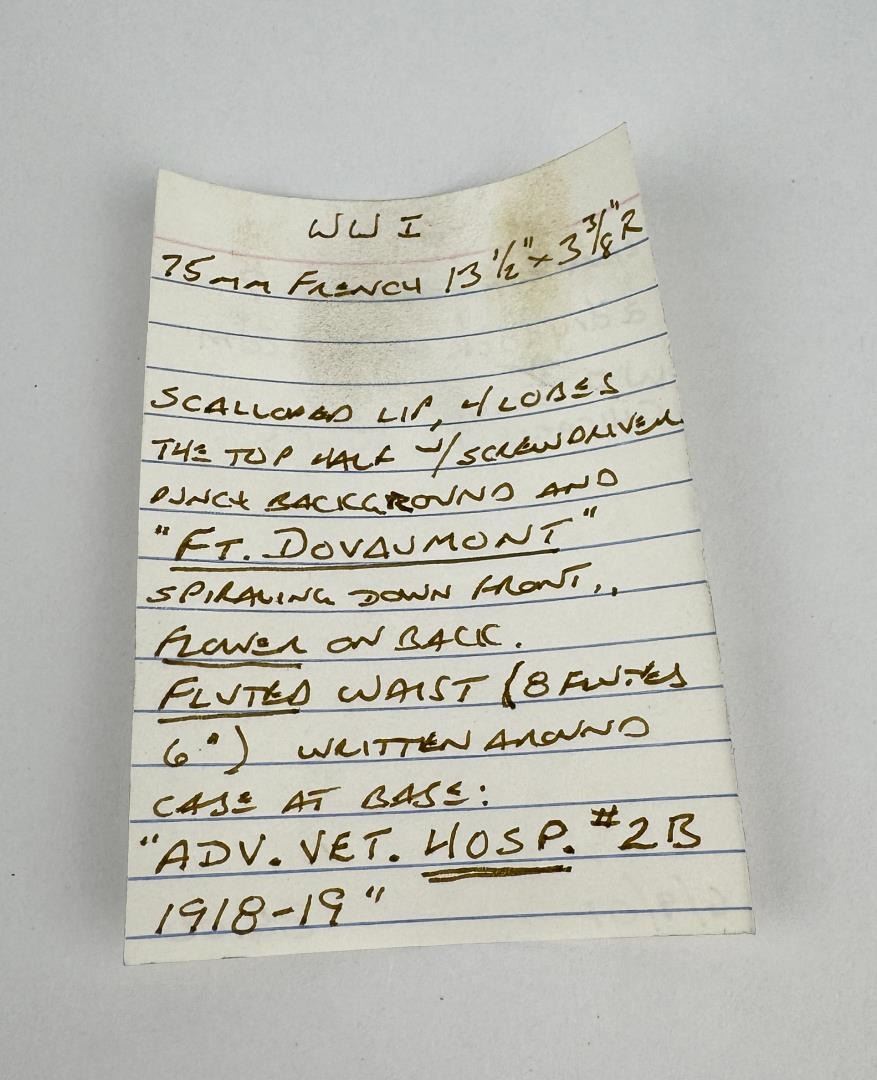 WW I
75mm FRENCH 13 1/2" x 3 3/8" R
SCALLOPED LIP, 4 LOBES
THE TOP HALF W/SCREWDRIVER
PUNCH BACKGROUND AND
"FT. DOVAUMONT"
SPIRALING DOWN FRONT,,
FLOWER ON BACK.
FLUTED WAIST (8 FLUTES
6") WRITTEN AROUND
CASE AT BASE:
"ADV. VET. HOSP. #2B
1918-19"